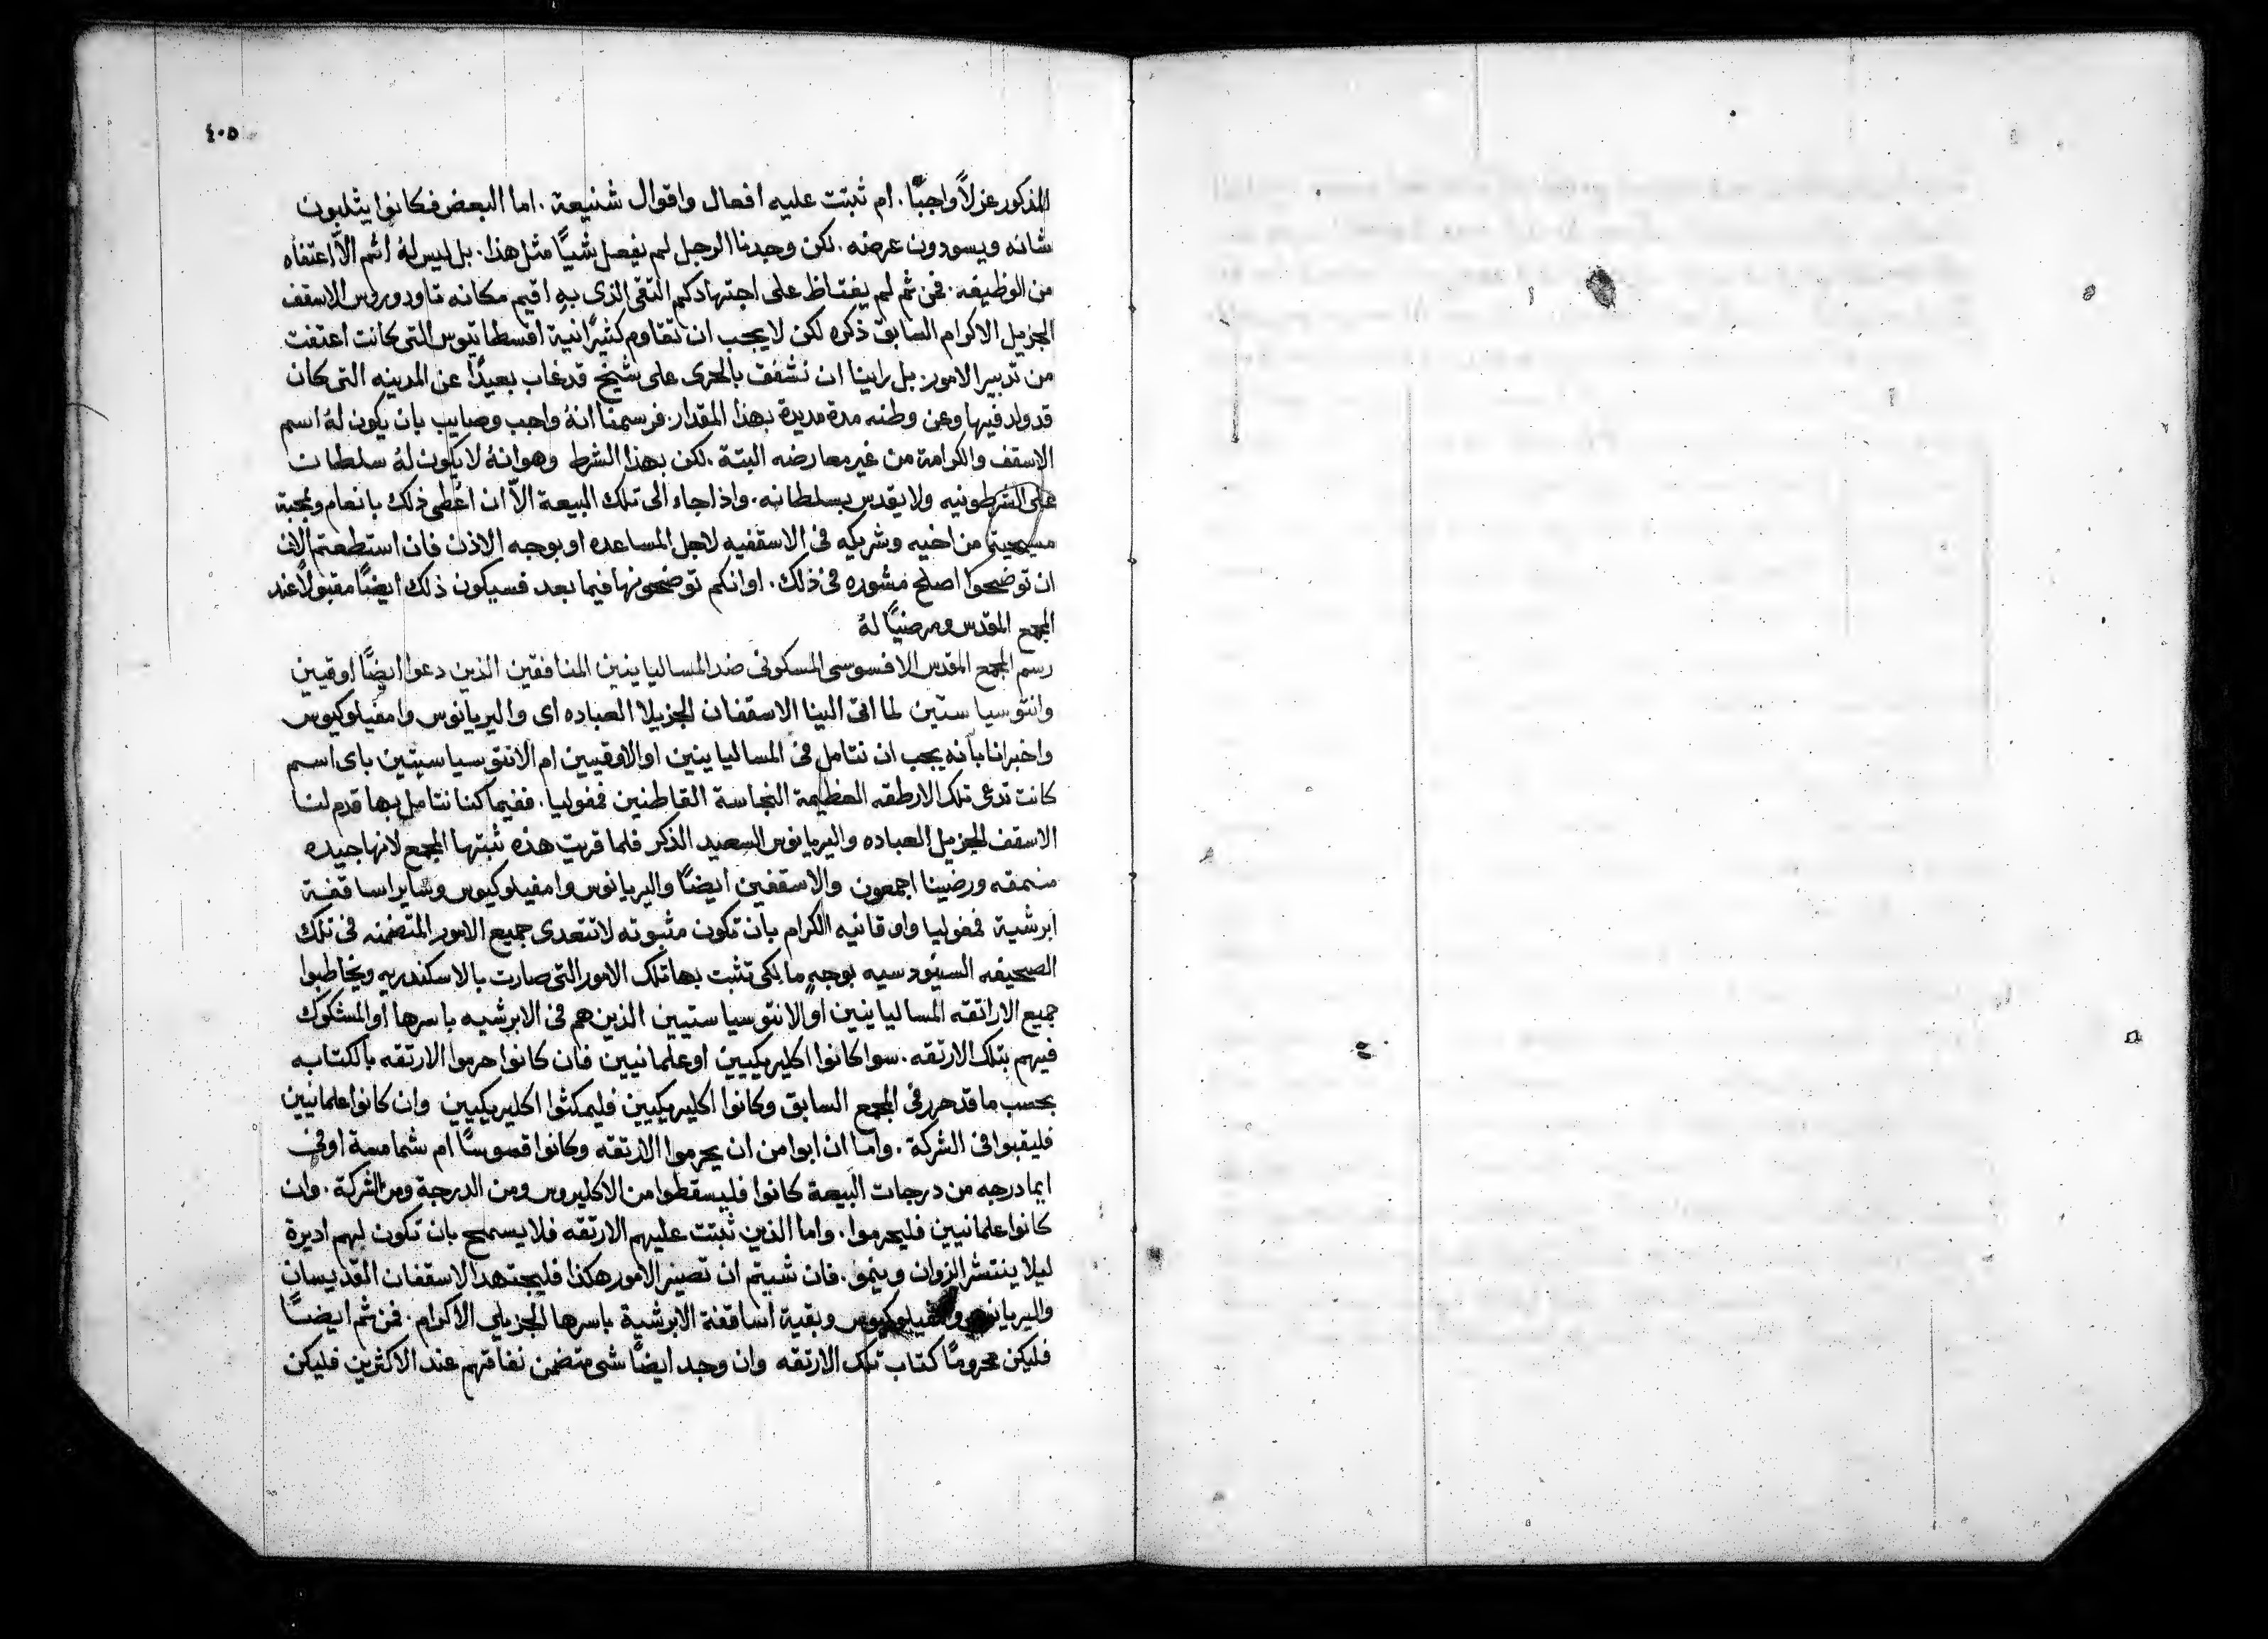 ٤٠٥
المذكور عزلاً واجبًا. ام ثبتت عليه افعال واقوال شنيعة. اما البعض فكانوا يثلبون
شانه ويسودون عرضه. لكن وجدنا الرجل لم يفعل شيًا مثل هذا. بل ليس لهُ اثم الاّ اعتفاه
من الوظيفه. فمن ثم لم يغتاظ على اجتهادكم التقى الذى بهِ اقيم مكانه تاودوروس الاسقف
الجزيل الاكرام السابق ذكره لكن لا يجب ان تقاوم كثيرًا نية افسطاتيوس التى كانت اعتفت
من تدبير الامور. بل راينا ان نشفق بالحرى على شيخ قد غاب بعيدًا عن المدينه التى كان
قد ولد فيها وعن وطنه مدة مديدة بهذا المقدار. فرسمنا انهُ واجب وصايب بان يكون لهُ اسم
الاسقف والكرامة من غير معارضه البتة. لكن بهذا الشرط وهو انهُ لا يكون لهُ سلطان
على الشرطونيه ولا يقدس بسلطانه. واذا جاء الى تلك البيعة الاّ ان اعطى ذلك بانعام ومحبة
مسيحية من اخيه وشريكه فى الاسقفيه لاجل المساعده او بوجه الاذن فان استطعتم الان
ان توضحوا اصلح مشوره فى ذلك. او انكم توضحونها فيما بعد فسيكون ذلك ايضًا مقبولاً عند
المجمع المقدس ومرضيًا لهُ
رسم المجمع المقدس الافسوسى المسكونى ضد المساليانيين المنافقين الذين دعوا ايضًا اوقيين
وانتوسياستين لما اتى الينا الاسقفان الجزيلا العباده اى واليريانوس وامفيلوكيوس
واخبرانا بانه يجب ان نتامل فى المساليانيين او الاوقيين ام الانتوسياستين باى اسم
كانت تدعى تلك الارطقه العظيمة النجاسة القاطنين فمفوليا. ففيما كنا نتامل بها قدم لنا
الاسقف الجزيل العباده واليريانوس السعيد الذكر فلما قريت هذه ثبتها المجمع لانها جيده
منمقه ورضينا اجمعون والاسقفين ايضًا واليريانوس وامفيلوكيوس وساير اساقفة
ابرشية فمفوليا واوقانيه الكرام بان تكون مثبوته لا تتعدى جميع الامور المتضمنه فى تلك
الصحيفه السينودسيه بوجهٍ ما لكى تثبت بها تلك الامور التى صارت بالاسكندريه ويخاطبوا
جميع الاراتقه المساليانيين او الانتوسياستيين الذين هم فى الابرشيه باسرها او المشكوك
فيهم بتلك الارتقه. سوا كانوا اكليريكيين او علمانيين فان كانوا حرموا الارتقه بالكتابه
بحسب ما قد حرر فى المجمع السابق وكانوا اكليريكيين فليمكثوا اكليريكيين وان كانوا علمانيين
فليقبوا فى الشركة. واما ان ابوا من ان يحرموا الارتقه وكانوا قسوسًا ام شمامسة او فى
ايما درجه من درجات البيعة كانوا فليسقطوا من الاكليروس ومن الدرجة ومن الشركة. وان
كانوا علمانيين فليحرموا. واما الذين ثبتت عليهم الارتقه فلا يسمح بان تكون لهم اديرة
ليلا ينتشر الزوان وينمو. فان شيتم ان تصير الامور هكذا فليجتهد الاسقفان القديسان
واليريانوس وامفيلوكيوس وبقية اساقفة الابرشية باسرها الجزيلي الاكرام. فمن ثم ايضًا
فليكن محرومًا كتاب تلك الارتقه وان وجد ايضًا شى متضمن نفاقهم عند الاكثرين فليكن